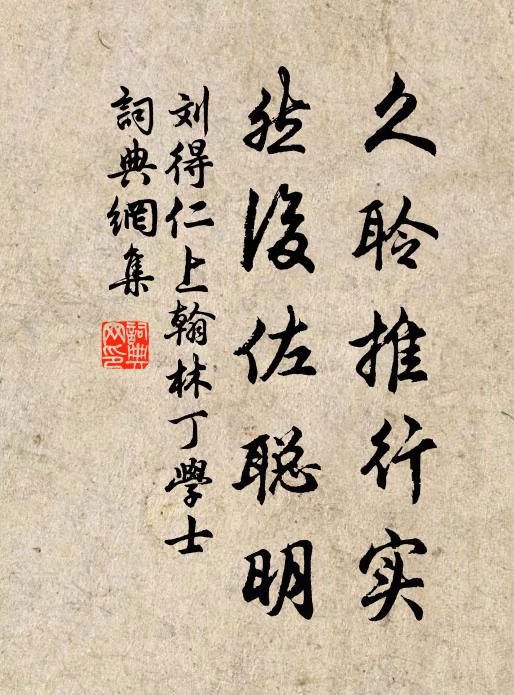 久聆推行实
然後佐聪明
刘得仁上翰林丁學士
詞典網集
詞典網印